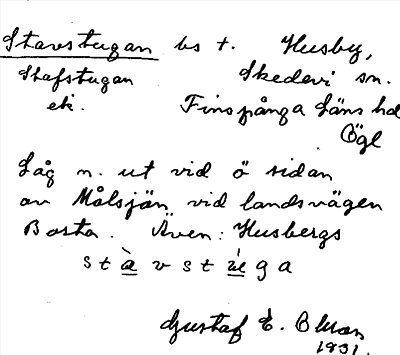 Stavstugan bs t. Husby,
Stafstugan Skedevi sn.
ek. Finspånga Läns hd
Ögl
Låg n. ut vid ö sidan
av Målsjön vid landsvägen
Borta. Även: Husbergs
s t à v s t ù g a
Gustaf E.
1931.